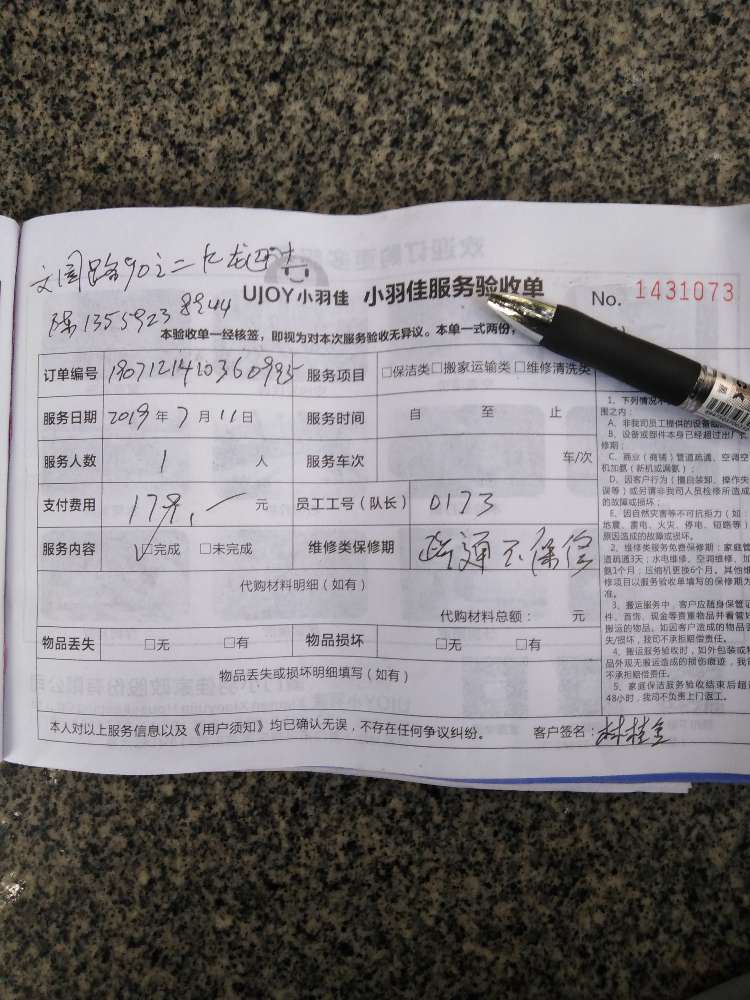 文园路90之二
陈13559238944
UJOY小羽佳 小羽佳服务验收单 No. 1431073
本验收单一经核签，即视为对本次服务验收无异议。本单一式两份，
订单编号 服务项目 □保洁类□搬家运输类□维修清洗类
服务日期 2019年7月11日 服务时间 自 至 止
服务人数 1 人 服务车次 车/次
支付费用 179.一 元 员工工号（队长） 0173
服务内容 ✓□完成 □未完成 维修类保修期 疏通不保修
代购材料明细（如有）
代购材料总额： 元
物品丢失 □无 □有 物品损坏 □无 □有
物品丢失或损坏明细填写（如有）
本人对以上服务信息以及《用户须知》均已确认无误，不存在任何争议纠纷。 客户签名：林桂金
1、下列情况不
围之内：
A、非我司员工提供的设备或
B、设备或部件本身已经超过出厂
修期；
C、商业（商铺）管道疏通、空调空
机加氨（新机或漏氨）；
D、因客户行为（擅自装卸、操作失
误等）或另请非我司人员检修所造成
的故障或损坏；
E、因自然灾害等不可抗拒力（如：
地震、雷电、火灾、停电、短路等）
原因造成的故障或损坏。
2、维修类服务免费保修期：家庭管
道疏通3天；水电维修、空调维修、加
氨1个月；压缩机更换6个月。其他维
修项目以服务验收单填写的保修期为
准。
3、搬运服务中，客户应随身保管证
件、首饰、现金等贵重物品并看管好
搬运的物品。如因客户造成的物品丢
失/损坏，我司不承担赔偿责任。
4、搬运服务验收时，如外包装或物
品外观无搬运造成的损伤痕迹，我司
不承担赔偿责任。
5、家庭保洁服务验收结束后超过
48小时，我司不负责上门返工。